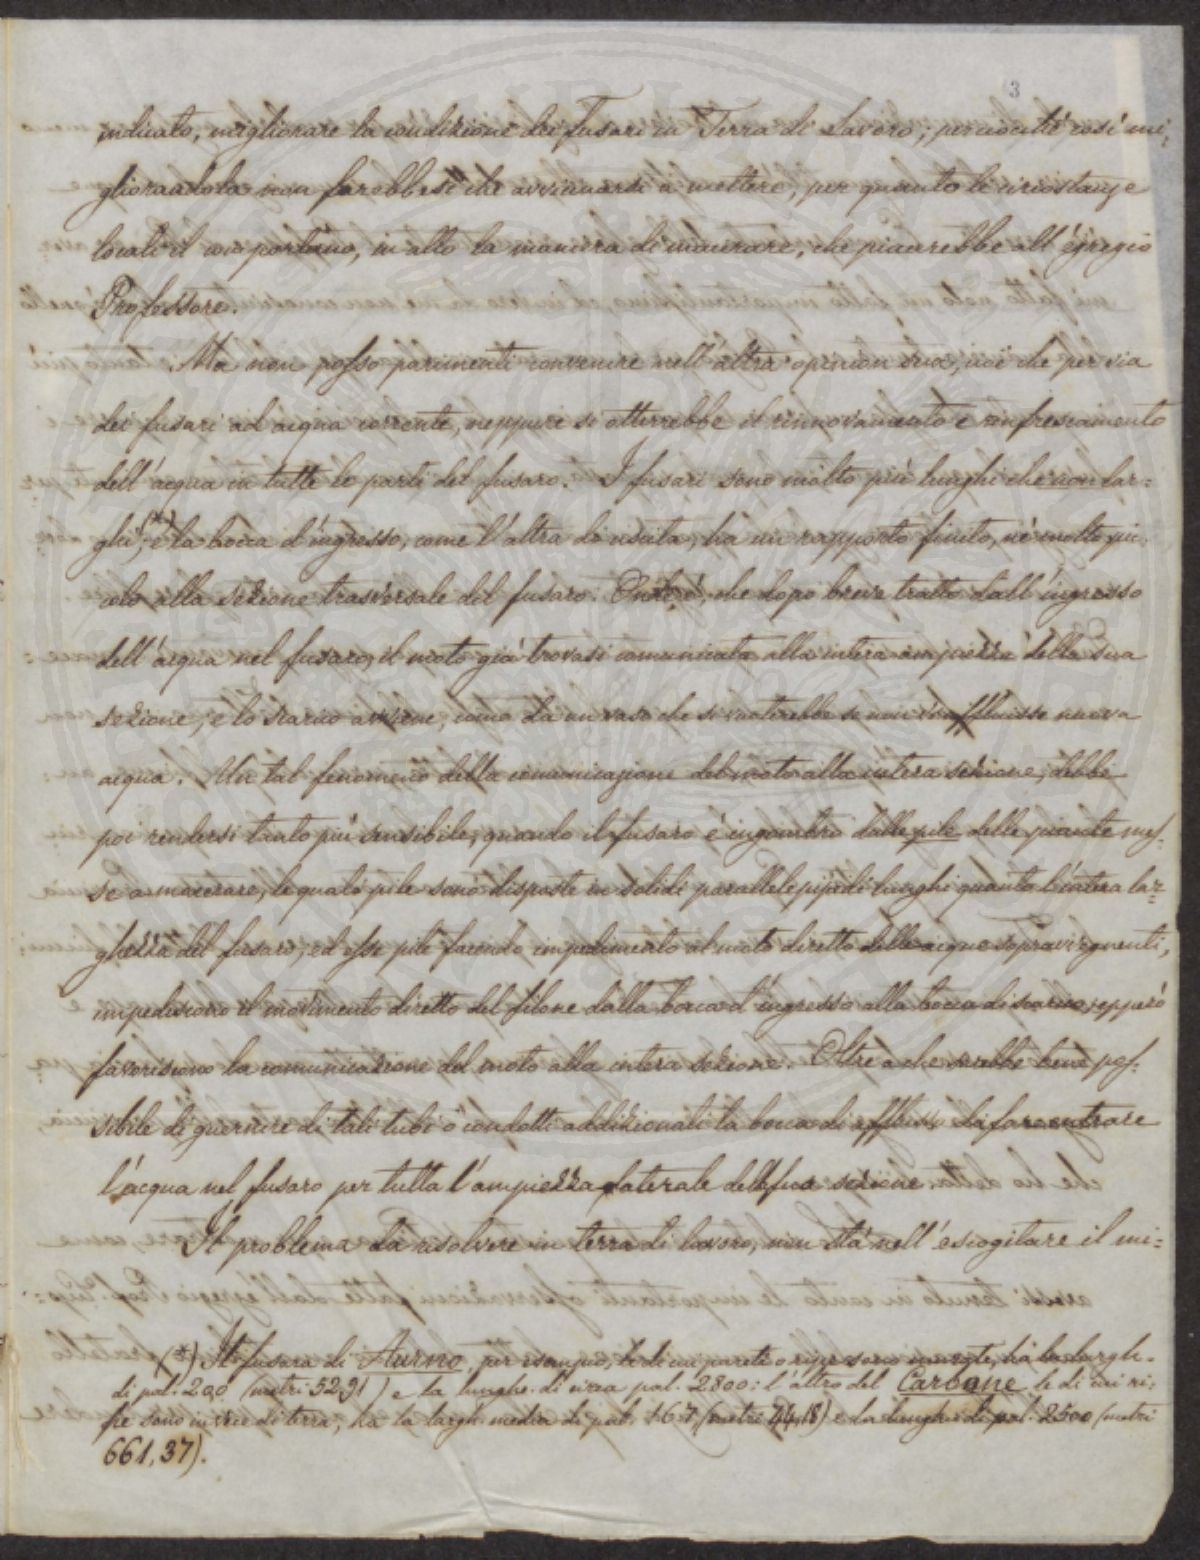 3
indicato, migliorare la condizione dei Fusari in Terra di Lavoro; perciocché così mi:
gliorandola non farebbesi che avvicinarsi a mettere, per quanto le circostanze
locali il comportano, in atto la maniera di macerare, che piacerebbe all'egregio
Professore.
Ma non posso parimenti convenire nell'altra opinion sua, cioè che per via
dei fusari ad acqua corrente, neppure si otterrebbe il rinnovamento e rinfrescamento
dell'acqua in tutte le parti del fusaro. I fusari sono molto più lunghi che non lar=
ghi (*), e la bocca d'ingresso, come l'altra di uscita, ha un rapporto finito, né molto pic
colo alla sezione trasversale del fusaro. Ond'è, che dopo breve tratto dall'ingresso
dell'acqua nel fusaro, il moto già trovasi comunicato alla intera ampiezza della sua
sezione; e lo scarico avviene, come da un vaso che si voterebbe se non affluisse nuova
acqua. Un tal fenomeno della comunicazione del moto alla intera sezione, debbe
poi rendersi tanto più sensibile, quando il fusaro è ingombro dalle pile delle piante mes-
se a macerare, le quali pile sono disposte in solidi parallelepipedi lunghi quanto l'intera lar=
ghezza del fusaro; ed esse pile facendo impedimento al moto diretto delle acque sopravvegnenti,
impediscono il movimento diretto del filone dalla bocca d'ingresso alla bocca di scarico, epperò
favoriscono la comunicazione del moto alla intera sezione. Oltre a che sarebbe bene pos-
sibile di guernire di tali tubi o condotti addizionali la bocca di efflusso da fare entrare
l'acqua nel fusaro per tutta l'ampiezza laterale della sua sezione.
Il problema da risolvere in terra di lavoro, non sta nell'escogitare il mi=
(*) Il fusaro di Aurno, per esempio, le di cui pareti o ripe sono murate, ha la largh.
di pal. 200 (metri 52,91) e la lunghe. di circa pal. 2800: l'altro del Carbone, le di cui ri:
pe sono invece di terra, ha la largh. media di pal. 167 (metri 44,18) e la lungh. di pal. 2500 (metri
661,37).